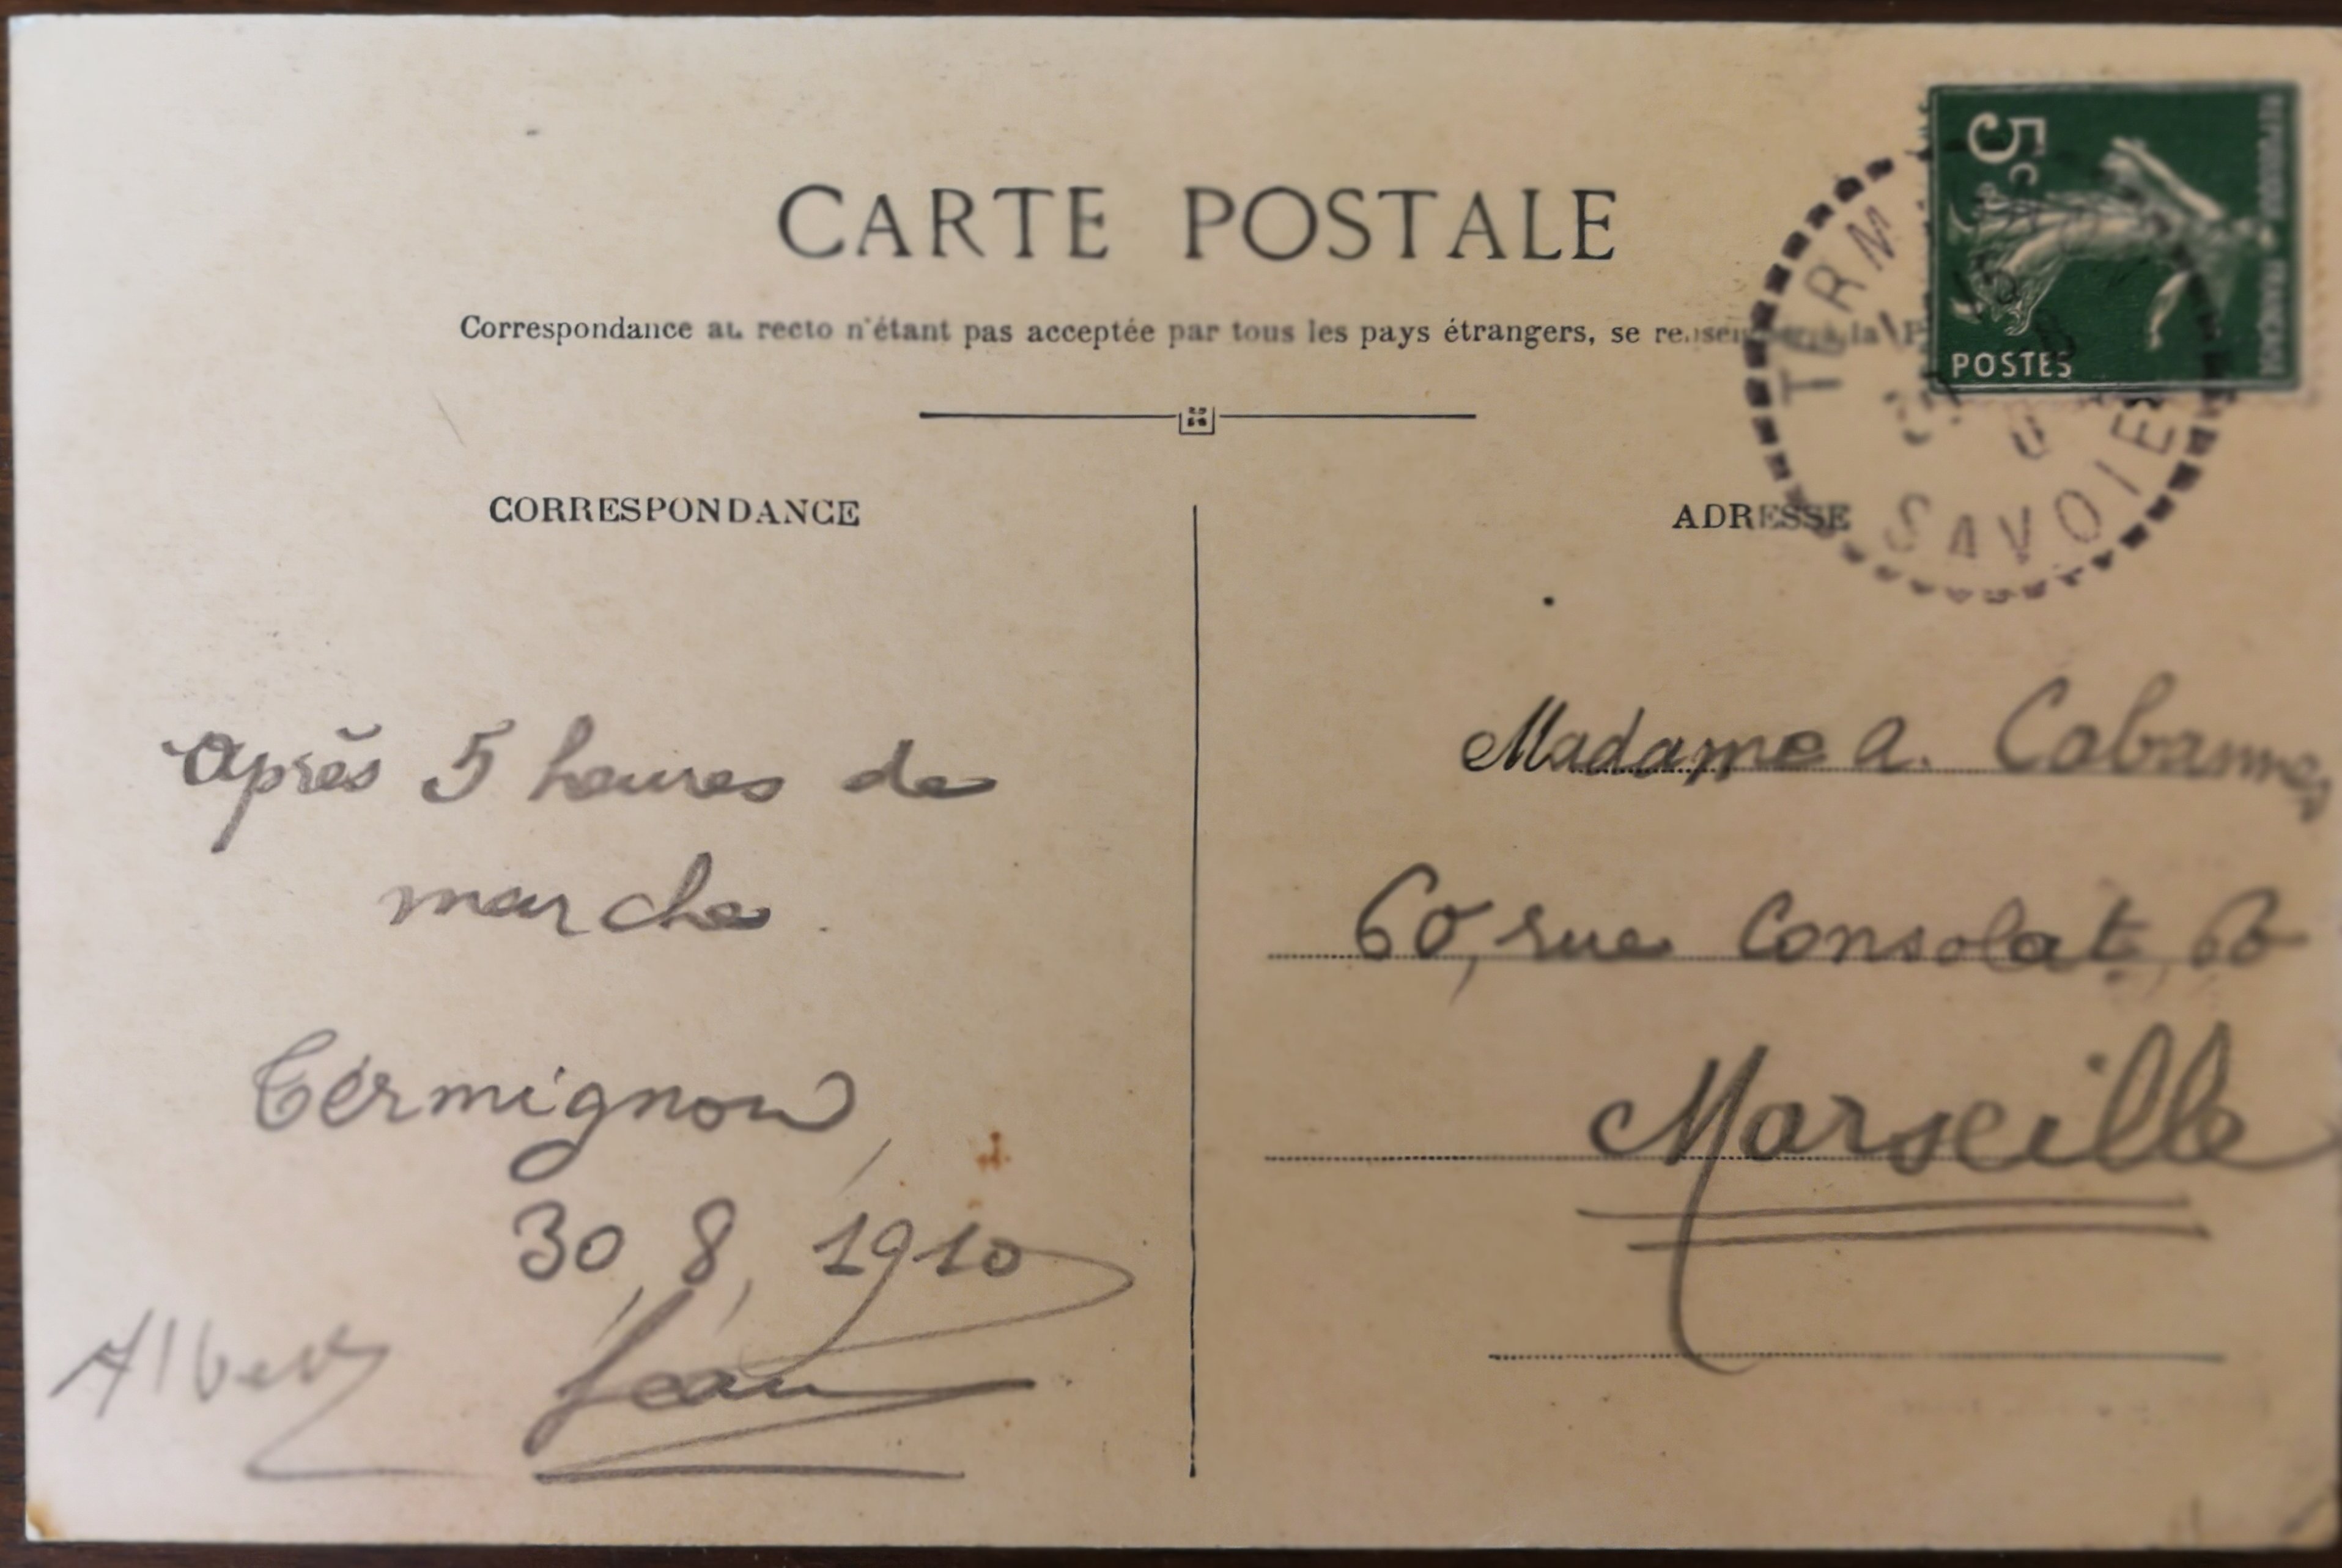 CARTE POSTALE
Correspondance au recto n'étant pas acceptée par tous les pays étrangers, se renseigner à la P
CORRESPONDANCE
Après 5 heures de
marche.
Térmignon,
30, 8, 1910
Albert Jean
ADRESSE
Madame A. Cabannes
60, rue Consolat, 60
Marseille
5c
POSTES
REPUBLIQUE FRANÇAISE
TERM
SAVOIE